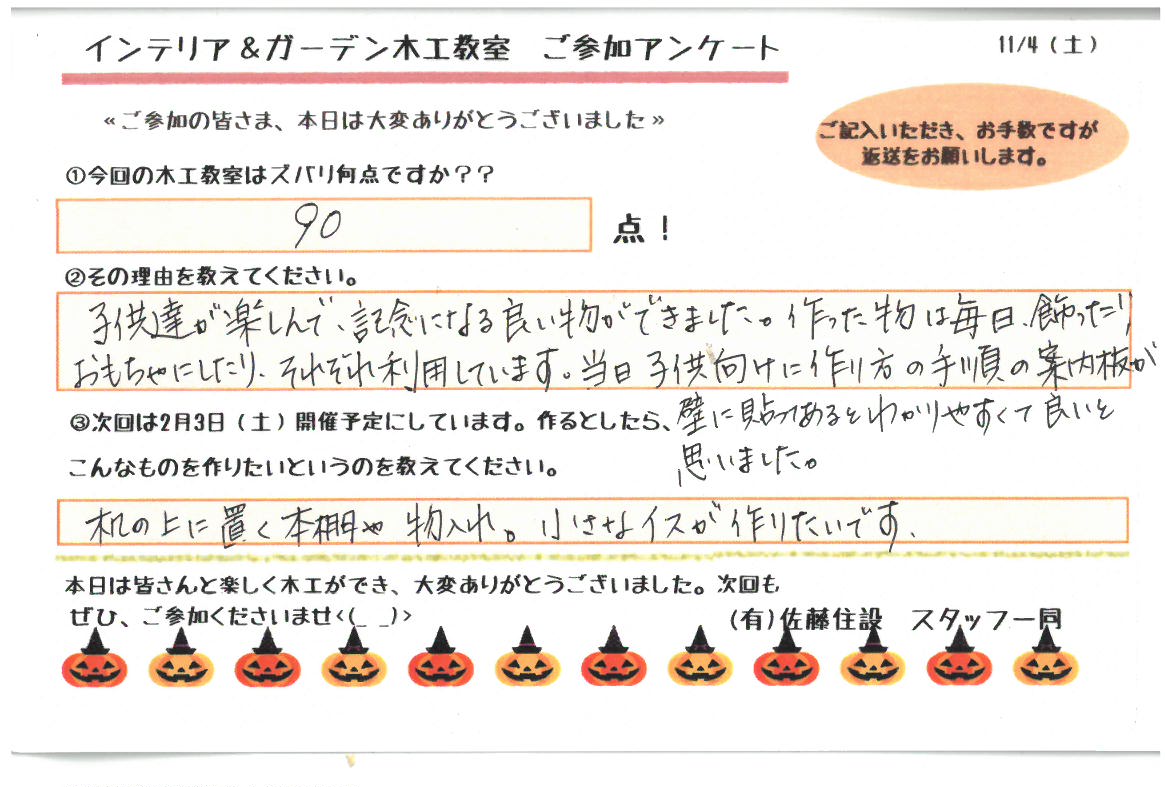 インテリア＆ガーデン木工教室　ご参加アンケート
11/4（土）
≪ご参加の皆さま、本日は大変ありがとうございました≫
ご記入いただき、お手数ですが
返送をお願いします。
①今回の木工教室はズバリ何点ですか？？
90
点！
②その理由を教えてください。
子供達が楽しんで、記念になる良い物ができました。作った物は毎日、飾ったり、
おもちゃにしたり、それぞれ利用しています。当日子供向けに作り方の手順の案内板が
壁に貼ってあるとわかりやすくて良いと
思いました。
③次回は2月3日（土）開催予定にしています。作るとしたら、
こんなものを作りたいというのを教えてください。
机の上に置く本棚や物入れ。小さなイスが作りたいです、
本日は皆さんと楽しく木工ができ、大変ありがとうございました。次回も
ぜひ、ご参加くださいませ<(_ _)>
(有)佐藤住設　スタッフ一同